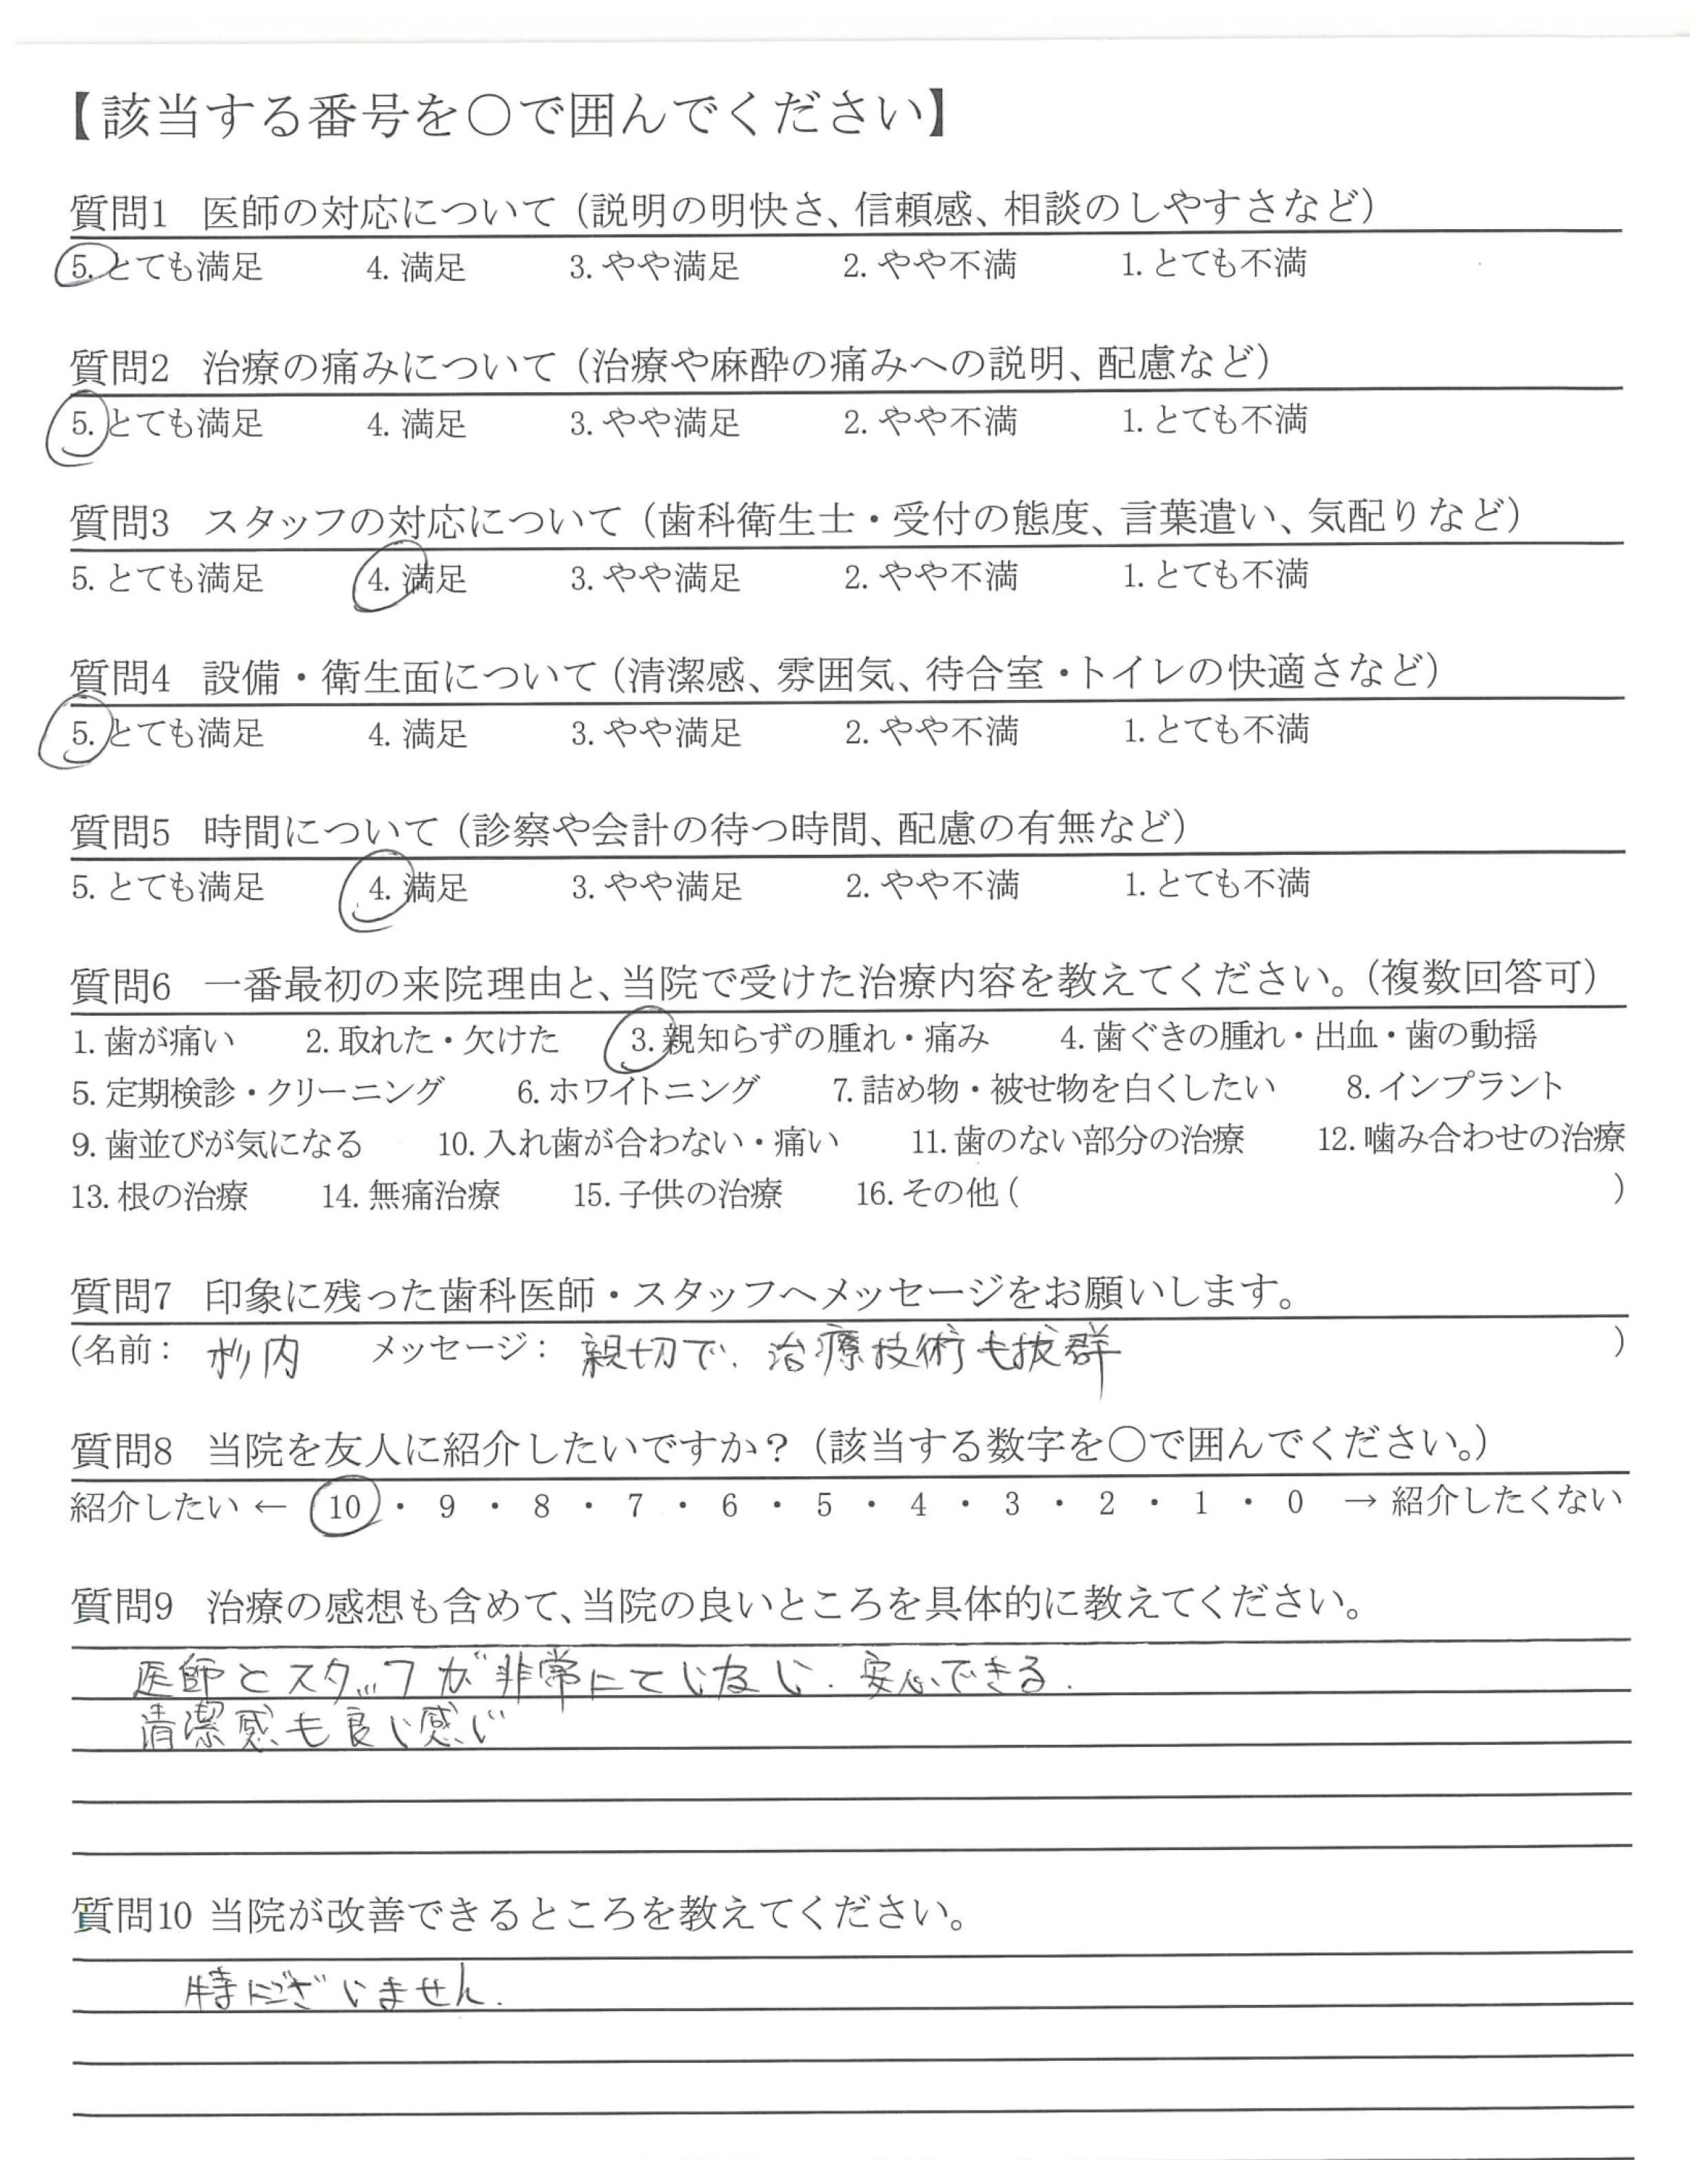 【該当する番号を○で囲んでください】
質問1 医師の対応について(説明の明快さ、信頼感、相談のしやすさなど)
5. とても満足 4. 満足 3. やや満足 2. やや不満 1. とても不満
質問2 治療の痛みについて(治療や麻酔の痛みへの説明、配慮など)
5. とても満足 4. 満足 3. やや満足 2. やや不満 1. とても不満
質問3 スタッフの対応について(歯科衛生士・受付の態度、言葉遣い、気配りなど)
5. とても満足 4. 満足 3. やや満足 2. やや不満 1. とても不満
質問4 設備・衛生面について(清潔感、雰囲気、待合室・トイレの快適さなど)
5. とても満足 4. 満足 3. やや満足 2. やや不満 1. とても不満
質問5 時間について(診察や会計の待つ時間、配慮の有無など)
5. とても満足 4. 満足 3. やや満足 2. やや不満 1. とても不満
質問6 一番最初の来院理由と、当院で受けた治療内容を教えてください。(複数回答可)
1. 歯が痛い 2. 取れた・欠けた 3. 親知らずの腫れ・痛み 4. 歯ぐきの腫れ・出血・歯の動揺
5. 定期検診・クリーニング 6. ホワイトニング 7. 詰め物・被せ物を白くしたい 8. インプラント
9. 歯並びが気になる 10. 入れ歯が合わない・痛い 11. 歯のない部分の治療 12. 噛み合わせの治療
13. 根の治療 14. 無痛治療 15. 子供の治療 16. その他( )
質問7 印象に残った歯科医師・スタッフへメッセージをお願いします。
(名前: 杉内 メッセージ: 親切で、治療技術も抜群 )
質問8 当院を友人に紹介したいですか?(該当する数字を○で囲んでください。)
紹介したい ← 10 ・ 9 ・ 8 ・ 7 ・ 6 ・ 5 ・ 4 ・ 3 ・ 2 ・ 1 ・ 0 → 紹介したくない
質問9 治療の感想も含めて、当院の良いところを具体的に教えてください。
医師とスタッフが非常にていねい. 安心できる.
清潔感も良い感じ
質問10 当院が改善できるところを教えてください。
特にございません.